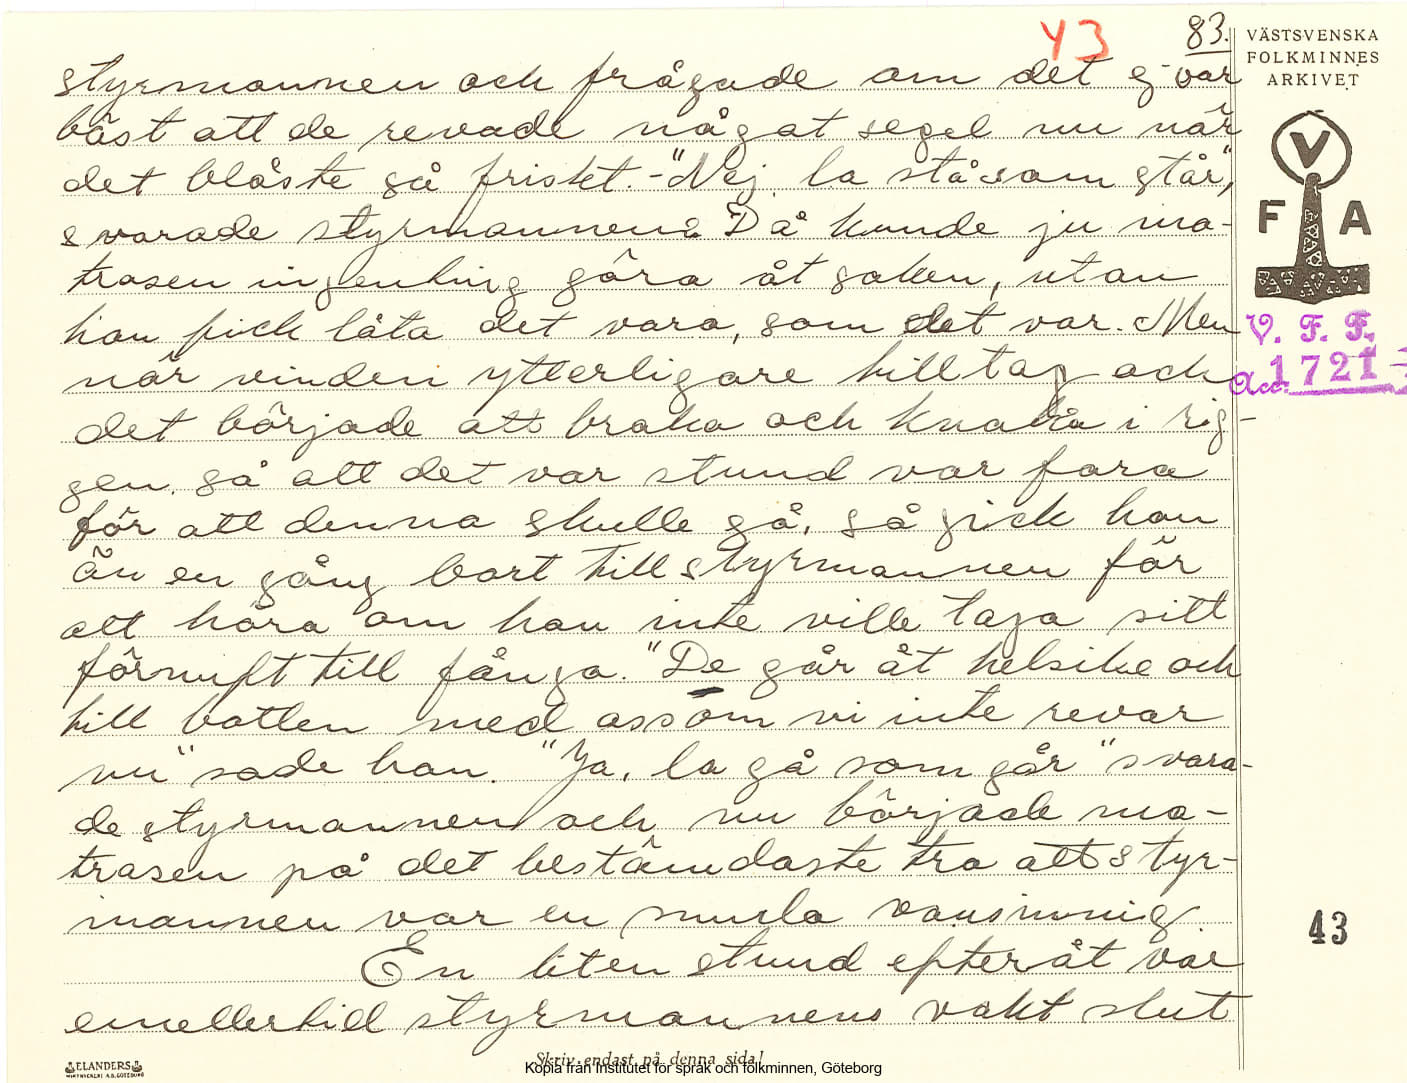 43
83.
VÄSTSVENSKA
FOLKMINNES
ARKIVET
V
F A
V. F. F.
Acc. 1721
styrmannen och frågade om det ej var
bäst att de revade något segel nu när
det blåste så friskt. - "Nej la stå som står",
svarade styrmannen. Då kunde ju ma-
trosen ingenting göra åt saken, utan
han fick låta det vara, som det var. Men
när vinden ytterligare tilltag och
det började att braka och knaka i rig-
gen, så att det var stund var fara
för att denna skulle gå, så gick han
än en gång bort till styrmannen för
att höra om han inte ville taga sitt
förnuft till fånga. "De går åt helsike och
till botten med oss om vi inte revar
nu" sade han. "Ja, la gå som går" svara-
de styrmannen och nu började ma-
trosen på det bestämdaste tro att styr-
mannen var en smula vansinnig
En liten stund efteråt var
emellertid styrmannens vakt slut
43
ELANDERS
BOKTRYCKERI A.B. GÖTEBORG
Skriv endast på denna sida!
Kopia från Institutet för språk och folkminnen, Göteborg